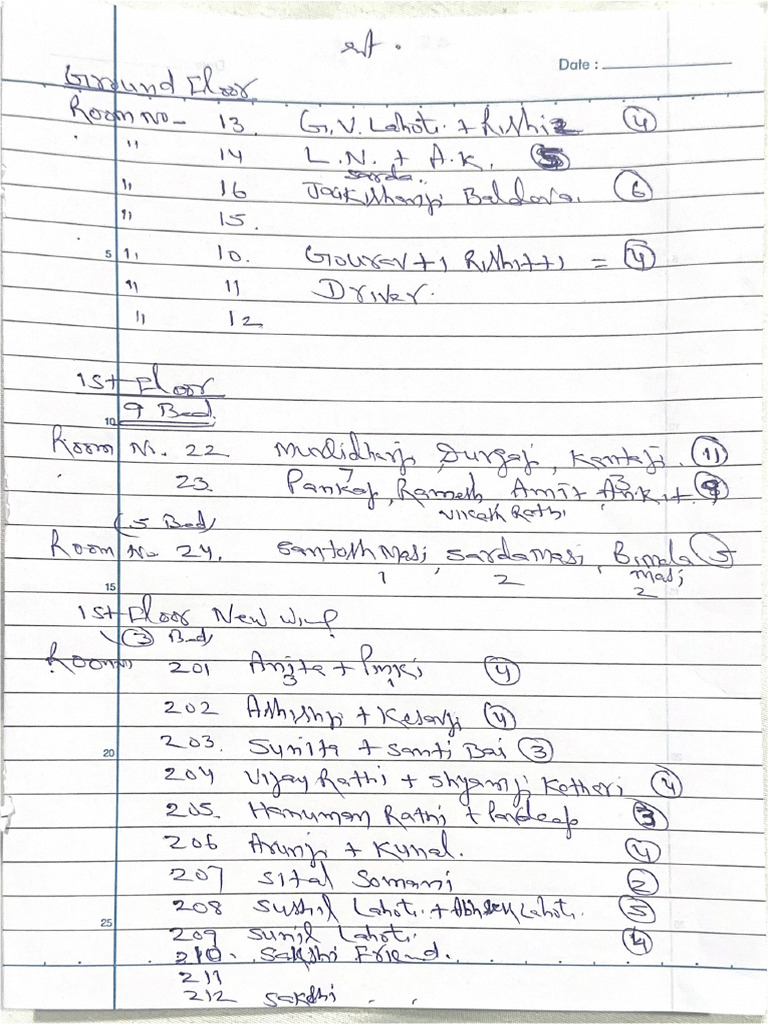 Date :
Ground Floor
Room No - 13. G.V. Lahoti + Rishi 4
" 14 L.N. + A.K. 5
Sarda
" 16 Jaikishanji Baldova. 6
" 15.
5 " 10. Gourav + 1 Rishi + 1 = 4
" 11 Driver.
" 12
1st Floor
10 9 Bed.
Room No. 22 Murlidharji, Durgaji, Kantaji. 11
7 3
23. Pankaj, Ramesh Amit Ankit 9
Vikash Rathi
(5 Bed)
Room No 24. Santosh Masi, Sarda Masi, Bimla Masi 5
1 2 2
15
1st Floor New Wing
3 Bed
Room No 201 Anita + Pinki 4
3 1
202 Ashishji + Kesavji 4
20 203. Sunita + Santi Bai 3
204 Vijay Rathi + Shyamji Kothari 4
205. Hanuman Rathi + Pardeep 3
206 Arunji + Kunal. 4
207 Sital Somani 2
208 Sushil Lahoti. + Abhishek Lahoti. 5
25 209 Sunil Lahoti. 4
210. Sakshi Friend.
211
212 Sakshi " "